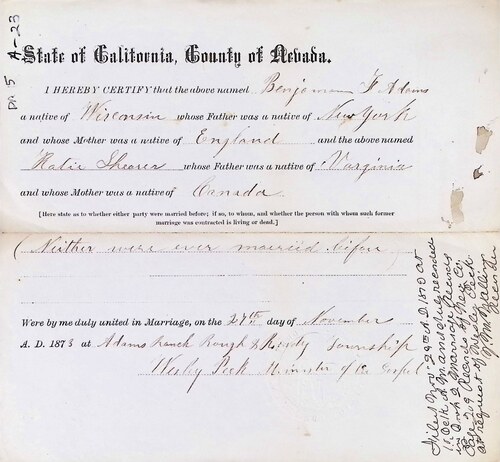 State of California, County of Nevada.
I HEREBY CERTIFY that the above named Benjamin F Adams
a native of Wisconsin whose Father was a native of New York
and whose Mother was a native of England and the above named
Katie Shearer whose Father was a native of Varginia
and whose Mother was a native of Canada
[Here state as to whether either party were married before; if so, to whom, and whether the person with whom such former
marriage was contracted is living or dead.]
Neither were ever married before
Were by me duly united in Marriage, on the 27th day of November
A. D. 1873 at Adams Ranch Rough & Ready Township
Wesley Peck Minister of the Gospel
Pg 5 A-23
Filed Nov. 29th A.D. 1873 at
in Book 2 Marriage
Page 209 Records of Nev. Co.
at request of Wesley Peck
Recorder